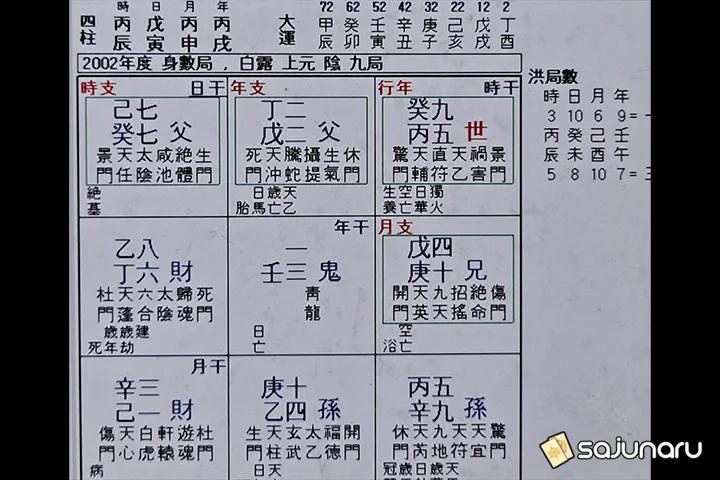 時 日 月 年
四柱 丙 戊 丙 丙
辰 寅 申 戌
大運 72 62 52 42 32 22 12 2
甲 癸 壬 辛 庚 己 戊 丁
辰 卯 寅 丑 子 亥 戌 酉
2002年度 身數局 , 白露 上元 陰 九局
時支 日干
己七
癸七 父
景天太咸絶生
門任陰池體門
絶
墓
年支
丁二
戊二 父
死天騰攝生休
門沖蛇提氣門
日歲天
胎馬亡乙
行年 時干
癸九
丙五 世
驚天直天禍景
門輔符乙害門
生空日獨
養亡華火
乙八
丁六 財
杜天六太歸死
門蓬合陰魂門
歲歲建
死年劫
年干
一
壬三 鬼
靑
龍
日
亡
月支
戊四
庚十 兄
開天九招絶傷
門英天搖命門
空
浴亡
月干
辛三
己一 財
傷天白軒遊杜
門心虎轅魂門
病
庚十
乙四 孫
生天玄太福開
門柱武乙德門
日天
丙五
辛九 孫
休天九天天驚
門芮地符宜門
冠歲日歲天
洪局數
時 日 月 年
3 10 6 9 =
丙 癸 己 壬
辰 未 酉 午
5 8 10 7 =
sajunaru